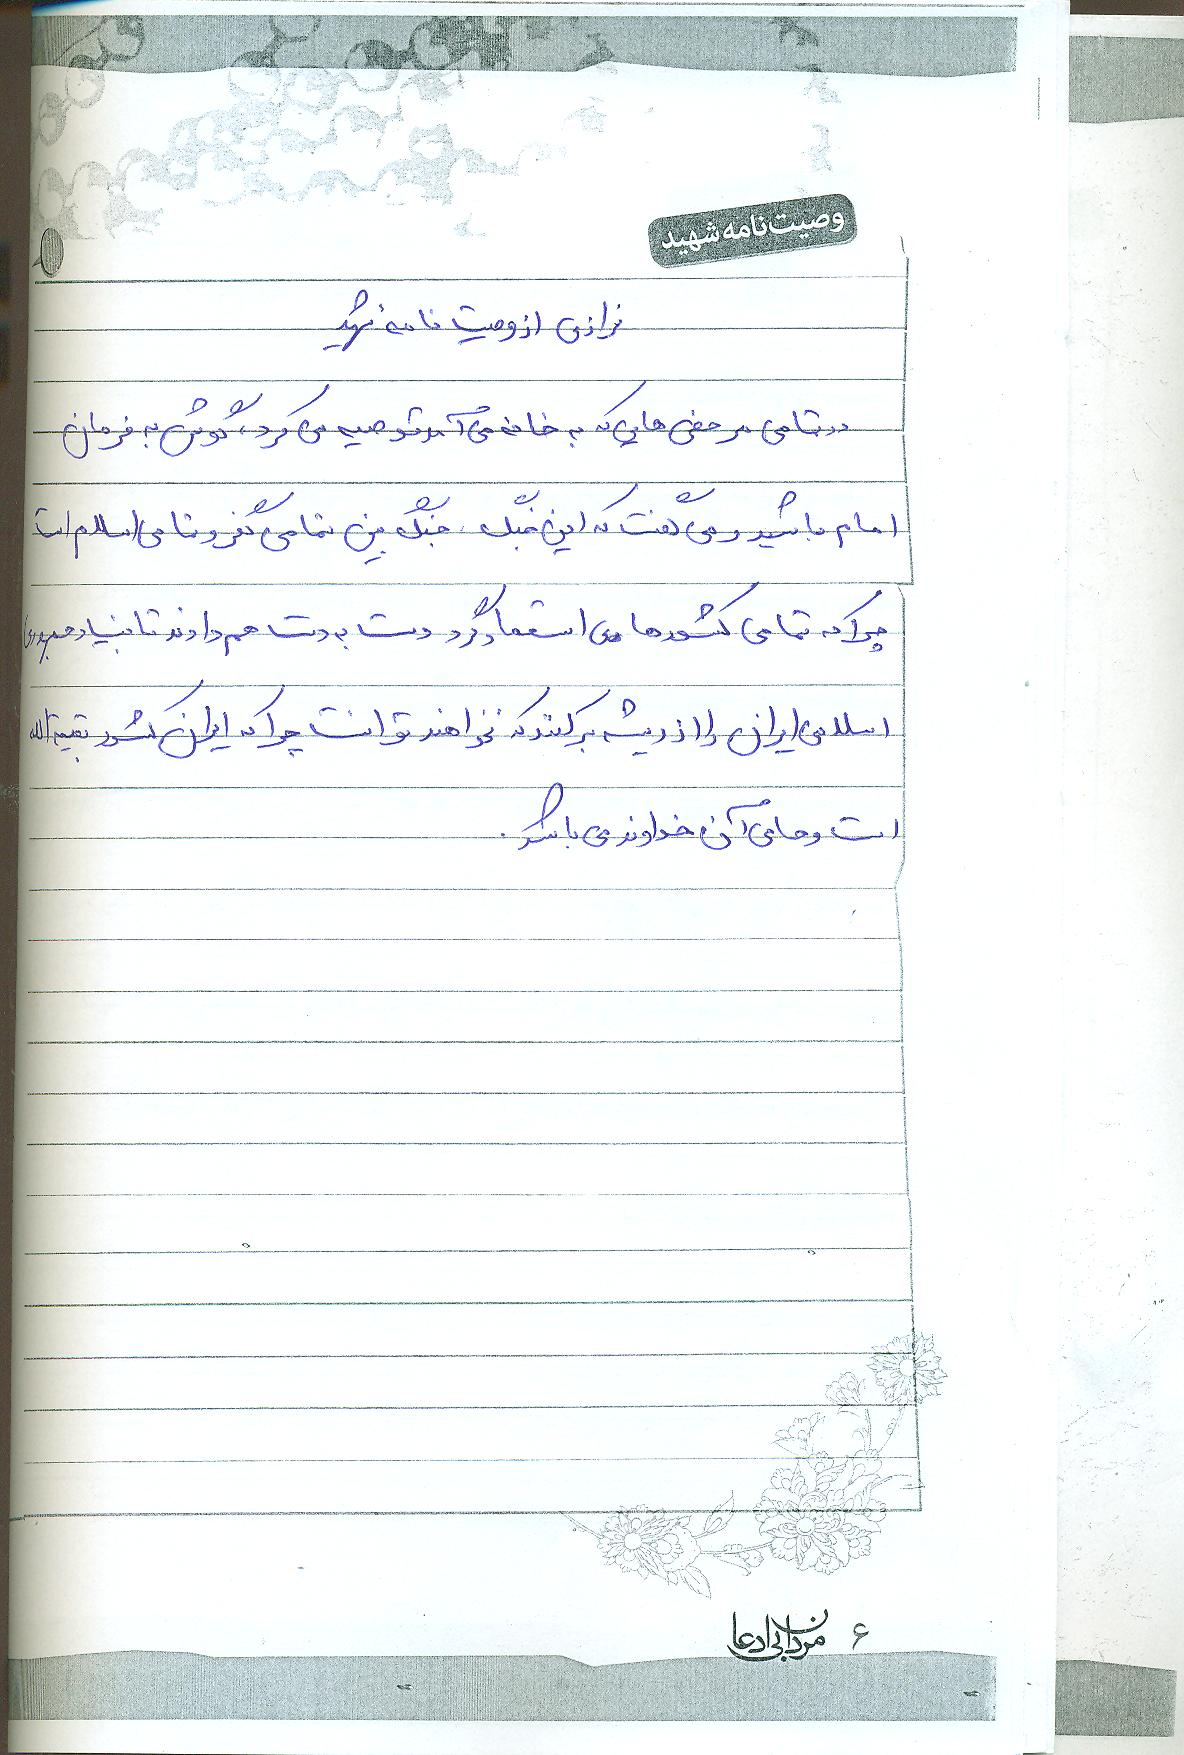 وصیت‌نامه شهید
فرازی از وصیت نامه شهید
در تمامی مرخصی هایی که به خانه می آمد توصیه می کرد، گوش به فرمان
امام باشید و می گفت که این جنگ، جنگ بین تمامی کفر و تمامی اسلام است
چرا که تمامی کشورهای استعمارگر دست به دست هم دادند تا بنیاد جمهوری
اسلامی ایران را از ریشه بر کنند که نخواهند توانست چرا که ایران کشور بقیة الله
است و حامی آن خداوند می باشد.
مردان بی ادعا ۶